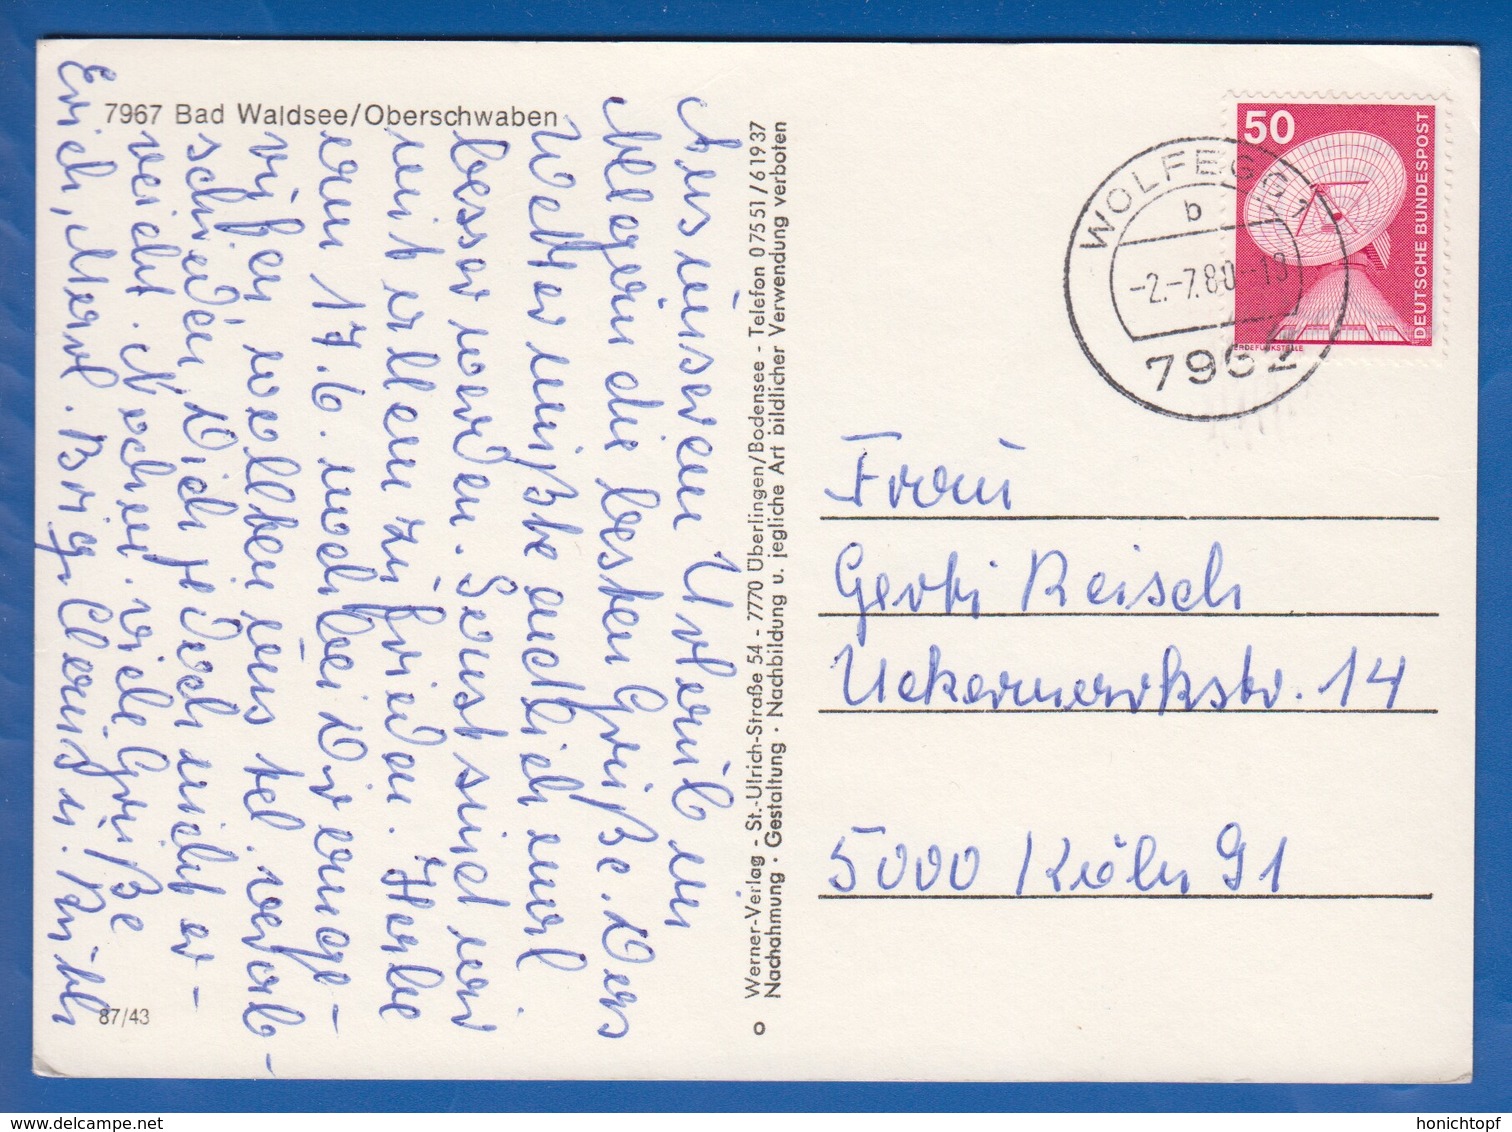 7967 Bad Waldsee/Oberschwaben
Aus unserem Urlaub im
Allgäu die besten Grüße. Das
Wetter müßte endlich mal
besser werden. Sonst sind wir
mit allem zufrieden. Habe
am 17.6. noch bei Dir ange-
rufen, wollten uns tel. verab-
schieden, Dich jedoch nicht er-
reicht. Nochm. viele Grüße
Erich, Marl. Brig. Claus u.
87/43
Werner-Verlag - St.-Ulrich-Straße 54 - 7770 Überlingen/Bodensee - Telefon 07551/61937
Nachahmung · Gestaltung · Nachbildung u. jegliche Art bildlicher Verwendung verboten
50
DEUTSCHE BUNDESPOST
ERDEFUNKSTELLE
WOLFEGG
b
-2.-7.80-18
7962
Frau
Gerti Reisch
Uckermarkstr. 14
5000 Köln 91
honichtopf